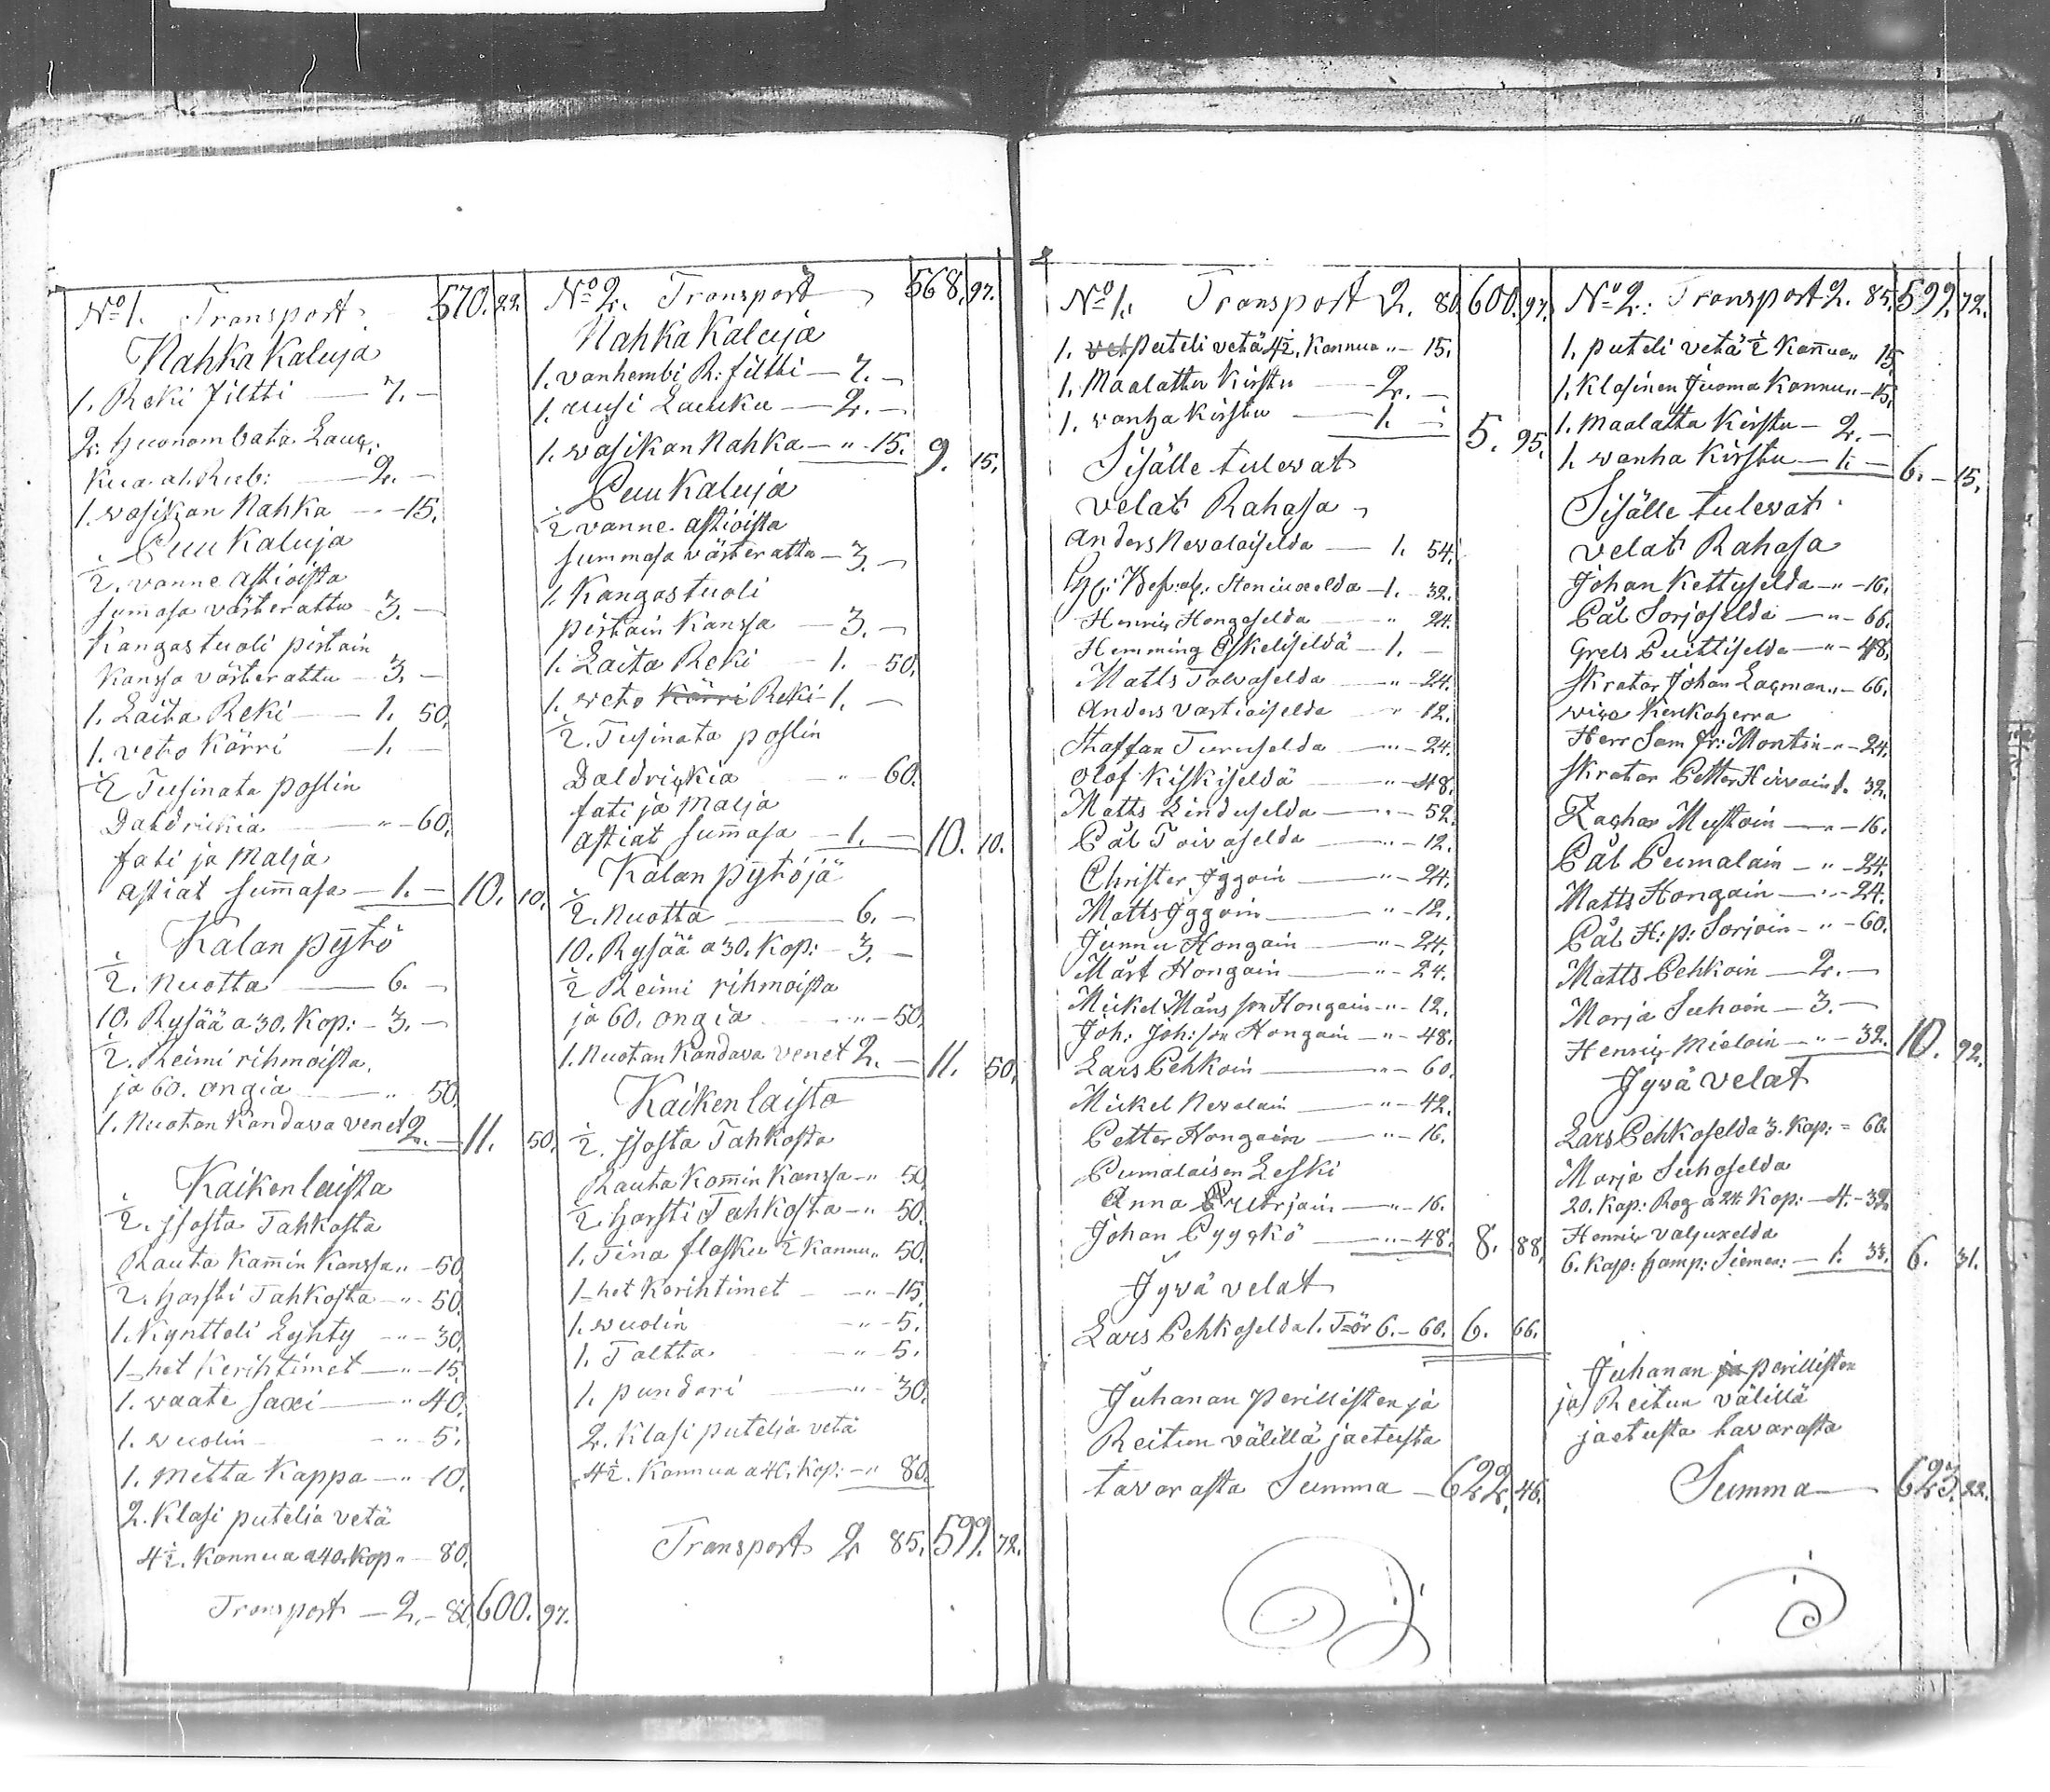 No 1. Transport 570. 22.
Nahka Kaluja
1. Reki filtti — 7. —
2. huonombata Lauq.
kua al. Rub: — 2. —
1. wasikan Nahka — " — 15.
Puu Kaluja
1/2. vanne astioista
summasa värterattu — 3. —
Kangastuoli pirtain
kanssa värterattu — 3. —
1. Laita Reki — 1. 50.
1. veto kärri — 1. —
1/2 Tusinata poslin
Daldrikia — " — 60.
fati ja malja
astiat summasa — 1. — 10. 10.
Kalan pyytö
1/2. Nuotta — 6. —
10. Rysää a 30. Kop: — 3. —
1/2. Reimi rihmoista
ja 60. ongia — " 50.
1. Nuotan Kandava venet 2. — 11. 50.
Kaikenlaista
1/2. Isosta Tahkosta
Rauta Kammin Kanssa " — 50.
1/2. harsti Tahkosta — " — 50.
1. Kyntteli Lyhty — " — 30.
1-het Kerihtimet — " — 15.
1. waate saxi — " 40.
1. wuolin — " — 5.
1. mitta Kappa — " — 10.
2. Klasi putelia vetä
4 1/2. Kannua a 40. Kop " — 80.
Transport — 2. — 80. 600. 97.
No 2. Transport 568. 97.
Nahka Kaluja
1. vanhembi R: filtti — 7. —
1. uusi Laukku — 2. —
1. wasikan Nahka — " — 15. 9. 15.
Puu Kaluja
1/2 vanne astioista
summasa värterattu — 3. —
1. Kangastuoli
pirtain Kanssa — 3. —
1. Laita Reki — 1. — 50.
1. weto Kärri Reki — 1. —
1/2. Tusinata poslin
Daldrikia — " — 60.
fati ja malja
astiat summasa — 1. — 10. 10.
Kalan pyytöjä
1/2. Nuotta — 6. —
10. Rysää a 30. Kop: — 3. —
1/2 Reimi rihmoista
ja 60. ongia — " — 50.
1. Nuotan Kandava venet 2. — 11. 50.
Kaikenlaista
1/2. Isosta Tahkosta
Rauta Kommin Kanssa — " 50.
1/2 harsti Tahkosta — " 50.
1. Tina flasku 1/2 Kannu " 50.
1-het Kerihtimet — " — 15.
1. wuolin — " — 5.
1. Taltta — " — 5.
1. pundari — " — 30.
2. Klasi putelia vetä
4 1/2. Kannua a 40. Kop: — " 80.
Transport 2 85. 599. 72.
No 1. Transport 2. 80. 600. 97.
1. vet puteli vetä 4 1/2. Kannua " — 15.
1. Maalattu Kirstu — 2. —
1. wanha Kirstu — 1. — 5. 95.
Sisälle tulewat
velat Rahasa
Anders Nevalaiselda — 1. 54.
Steniuxelda — 1. — 32.
Henric Hongaselda — " 24.
Hemming Eskeliseldä — 1. —
Matts Talvaselda — " — 24.
Anders Vartiaiselda — " — 12.
Staffan Turuselda — " — 24.
Olof Kiskiseldä — " — 48.
Matts Linduselda — " — 52.
Pål Toivaselda — " — 12.
Christer Iggoin — " — 24.
Matts Iggoin — " — 12.
Junnu Hongain — " — 24.
Mårt Hongain — " — 24.
Mickel Måns son Hongain — " — 12.
Joh: Joh: son Hongain — " — 48.
Lars Pehkoin — " — 60.
Mickel Nevalain — " — 42.
Petter Hongain — " — 16.
Pumalaisen Leski
Anna Putrjain — " — 16.
Johan Pyykkö — " — 48. 8. 88.
Jywä velat
Lars Pehkoselda 1. Tör 6. — 66. 6. 66.
Juhanan perillisten ja
Reitun välillä jaetusta
tavarasta Summa — 622. 46.
No 2: Transport 2. 85. 599. 72.
1. puteli vetä 1/2 Kannua " 15.
1. Klasinen Juoma Kannu " — 15.
1. Maalattu Kirstu — 2. —
1. wanha Kirstu — 1. — 6. — 15.
Sisälle tulewat
velat Rahasa
Johan Kettuselda — " — 16.
Pål Sorjoselda — " — 66.
Grels Puittiselda — " — 48.
Skratar Johan Lagman " — 66.
wice Kirkoherra
Herr Sam fr: Montin — " — 24.
Skratar Petter Hirvain 1. 32.
Zachar Mustoin — " — 16.
Pål Pumalain — " — 24.
Matts Hongain — " — 24.
Pål H: p: Sorjoin — " — 60.
Matts Pehkoin — 2. —
Marja Suhoin — 3. —
Henric Mieloin — " — 32. 10. 92.
Jywä velat
Lars Pehkoselda 3. Kap: = 66.
Marja Suhoselda
20. Kap: Rog a 24 Kop: — 4. — 32.
Henric Valjuxelda
6. Kap: hamp: Siemen: — 1. 33. 6. 31.
Juhanan ja perillisten
ja Reitun välillä
jaetusta tavarasta
Summa — 623. 22.